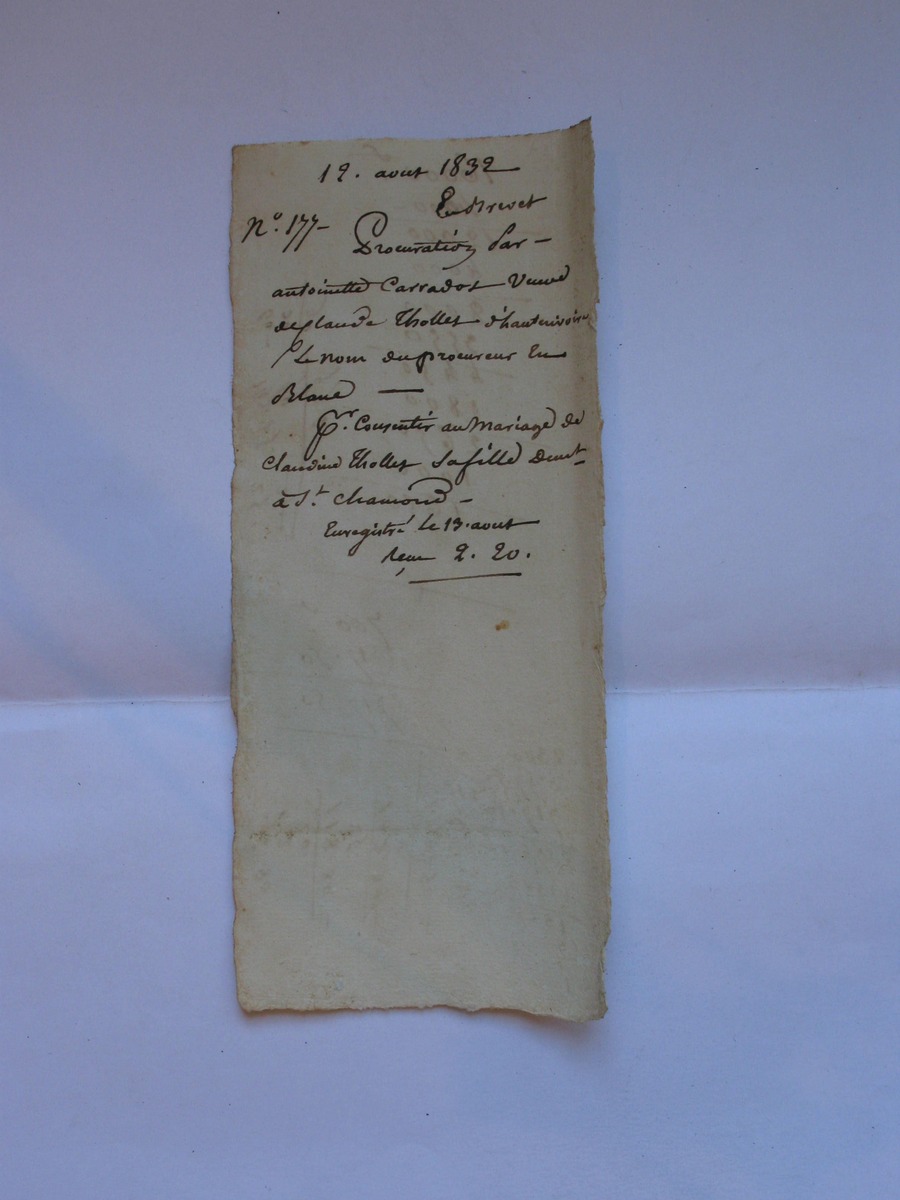 12. aout 1832
En Brevet
N°. 177-
Procuration Par -
antoinette Carradot Veuve
de Claude Thollet d'hauterivoire
Le nom du procureur En
Blanc —
Pr. Consentir au Mariage de
Claudine Thollet Sa fille Demt.
à St. Chamond -
Enregistré Le 13. aout
Reçu 2. 20.